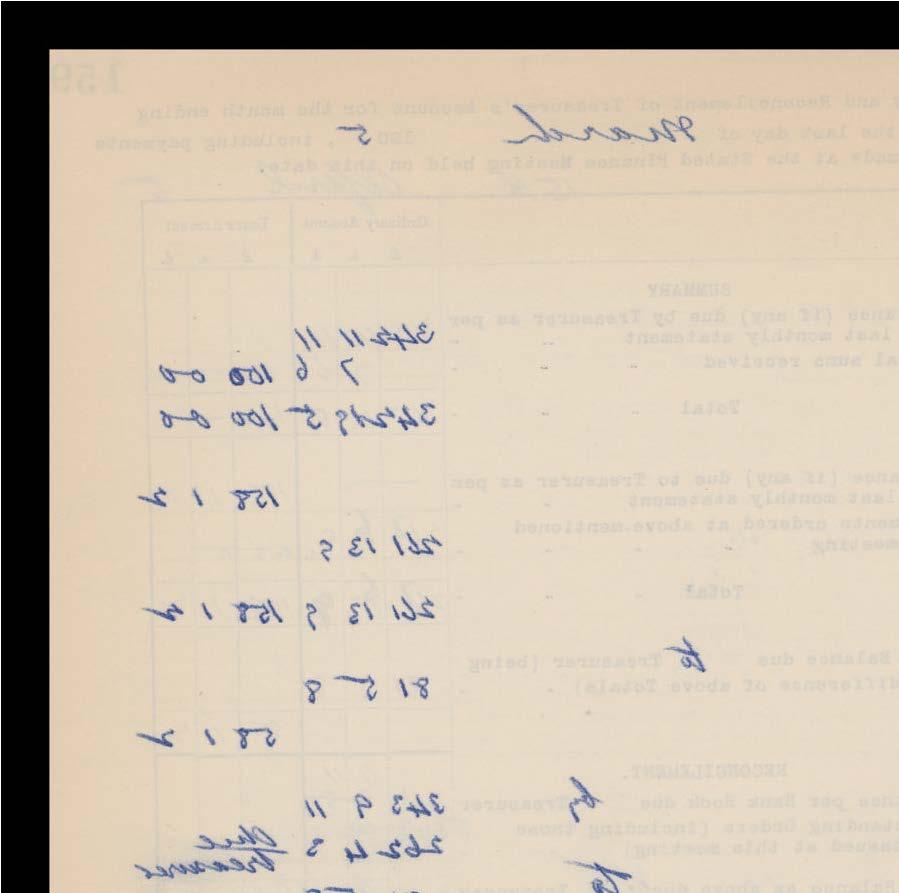 159
and Reconcilement of Treasurer's Account for the month ending
the last day of March 190 5, including payments
made at the Stated Finance Meeting held on this date.
Ordinary Account
£ s d £ s d
SUMMARY
ance (if any) due by Treasurer as per
last monthly statement - - 342 11 11
al sums received - - 7 6 100 0 0
Total - - 342 19 5 100 0 0
ance (if any) due to Treasurer as per
last monthly statement - - 158 1 2
ments ordered at above-mentioned
meeting - - - - 261 13 9
Total - - 261 13 9 158 1 2
Balance due to Treasurer (being
difference of above Totals) - - 81 5 8
58 1 2
RECONCILEMENT.
nce per Bank Book due by Treasurer 343 9 11
standing Orders (including those
issued at this meeting) 262 4 3
Treasurer
as above due to Treasurer